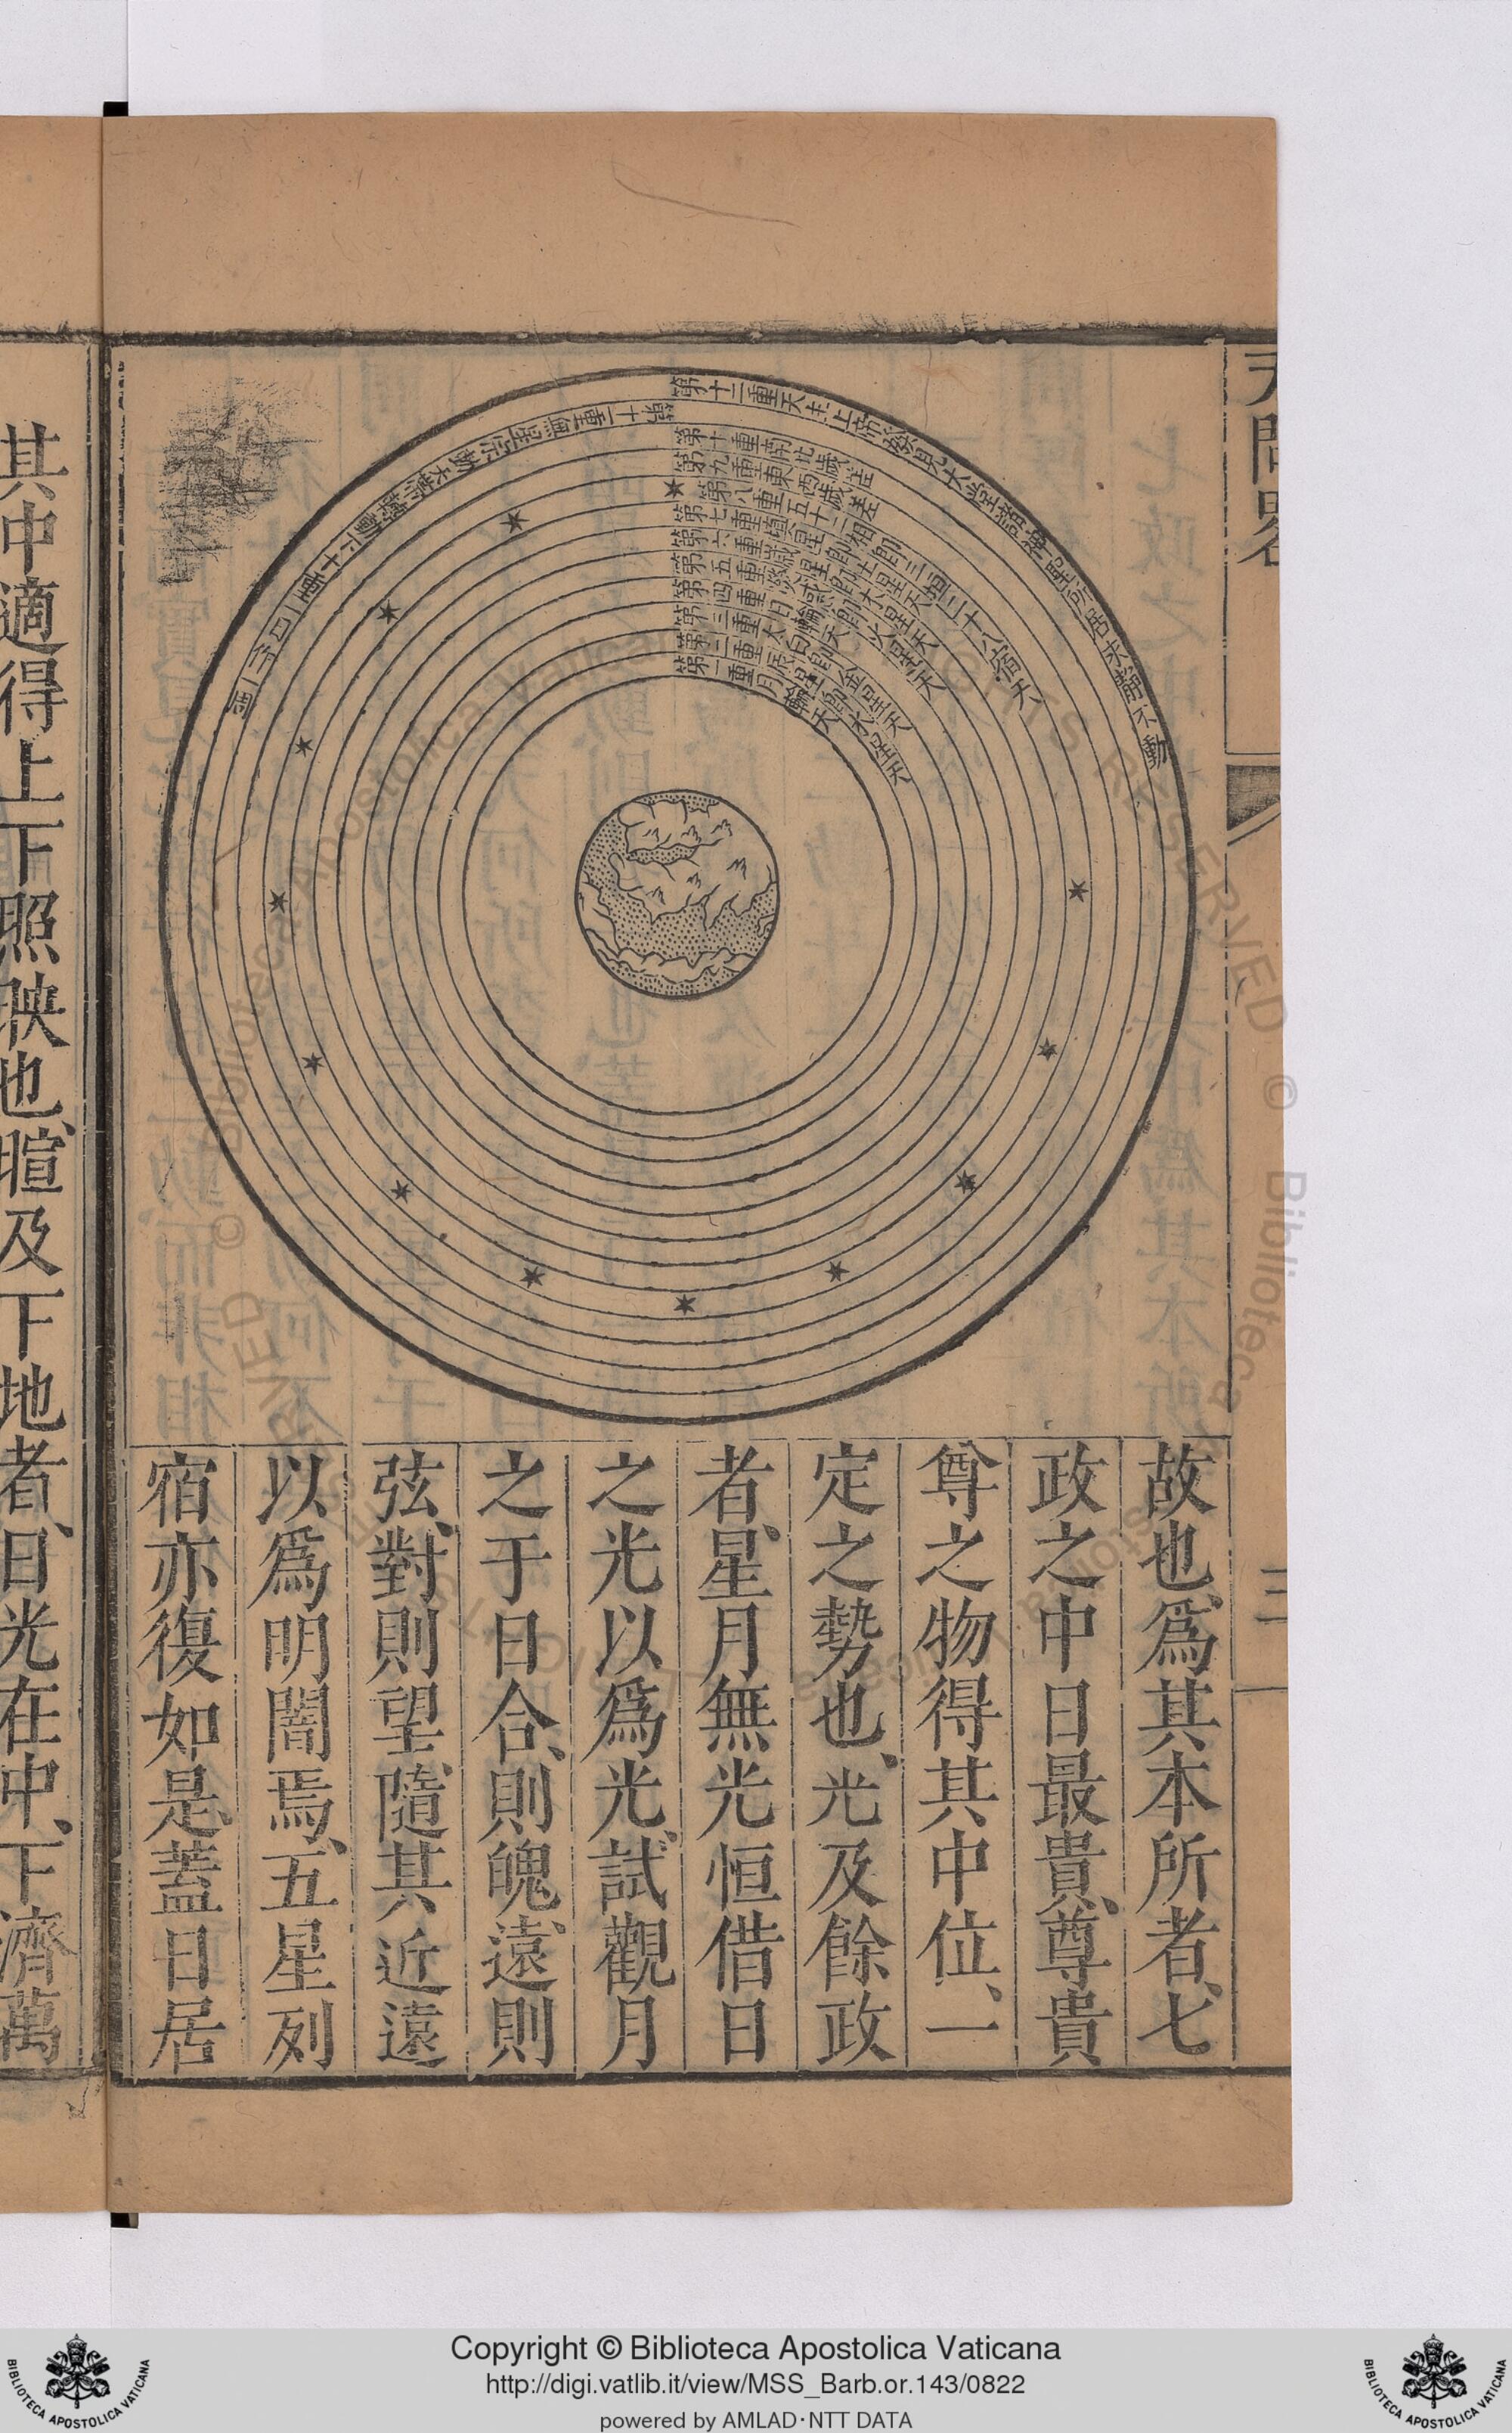 天問畧
三
第十二重天主上帝發見天堂諸神聖所居永靜不動
第十一重無星宗動天帶轉動下十重一日一行一周
第十重南北歲差
第九重東西歲差
第八重五十二相即三垣二十八宿天
第七重填星即土星天
第六重歲星即木星天
第五重熒惑即火星天
第四重日輪天
第三重太白即金星天
第二重辰星即水星天
第一重月輪天
故也、爲其本所者、七
政之中日最貴、尊貴
尊之物得其中位、一
定之勢也、光及餘政
者、星月無光恒借日
之光以爲光、試觀月
之于日合、則魄、遠則
弦、對則望、隨其近遠
以爲明闇焉、五星列
宿亦復如是、蓋日居
其中適得上下照映也、暄及下地者、日光在中、下濟萬
Copyright © Biblioteca Apostolica Vaticana
http://digi.vatlib.it/view/MSS_Barb.or.143/0822
powered by AMLAD·NTT DATA
BIBLIOTECA APOSTOLICA VATICANA
BIBLIOTECA APOSTOLICA VATICANA